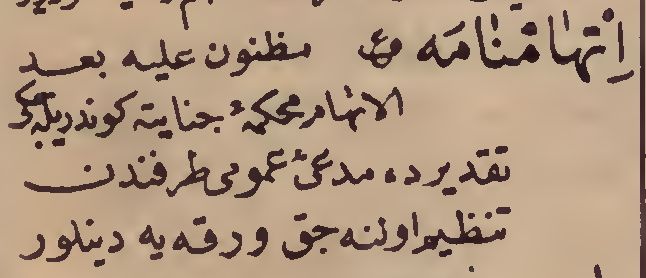 اِتهامنامه مظنون عليه بعد
الاتهام محكمهٔ جنايته كوندريله‌جكى
تقديرده مدعئ عمومى طرفندن
تنظيم اولنه جق ورقه يه دينلور